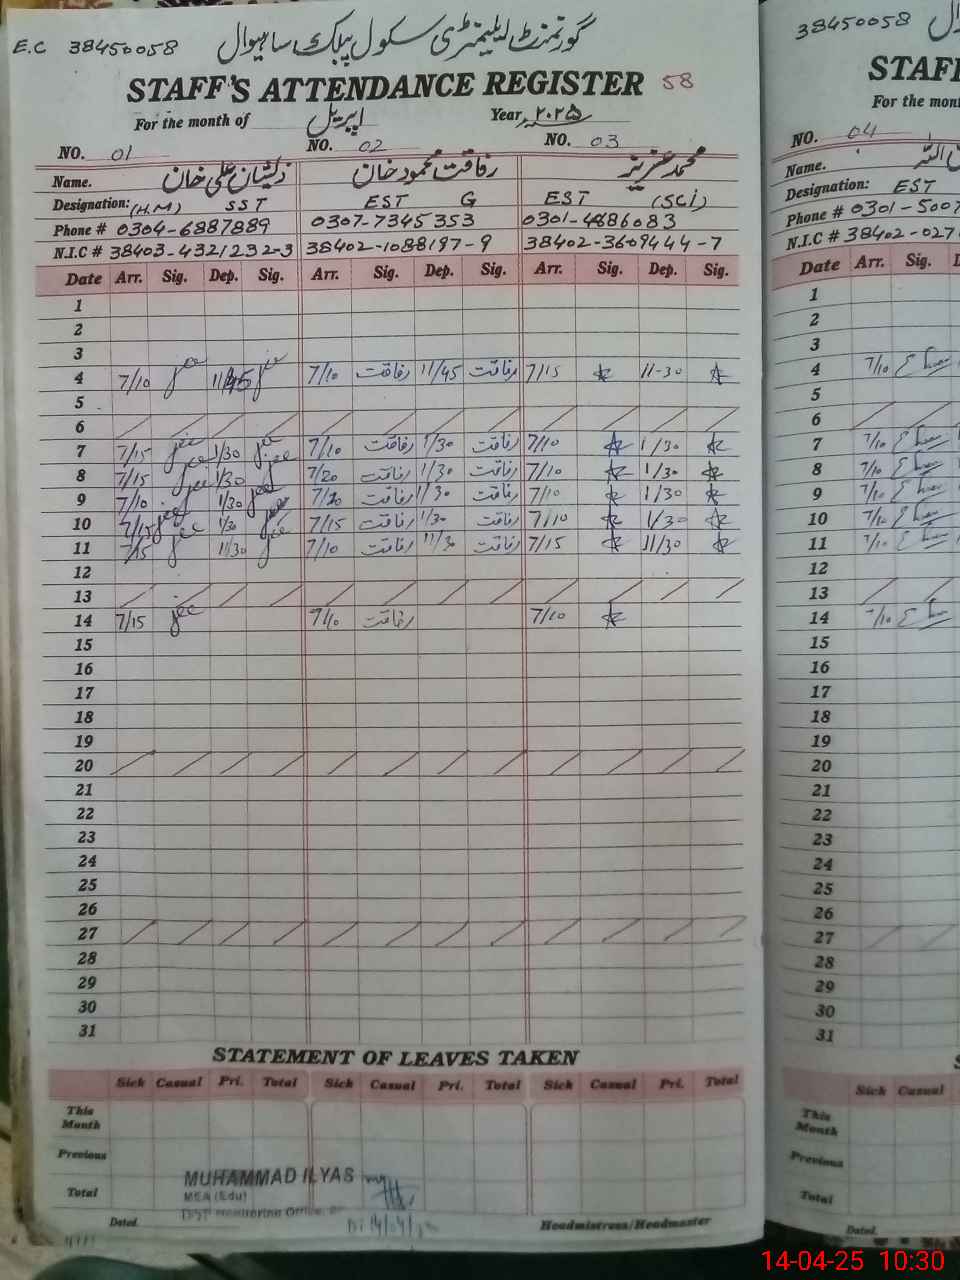 E.C 38450058 گورنمنٹ ایلیمنٹری سکول پبلک ساہیوال
STAFF'S ATTENDANCE REGISTER 58
For the month of اپریل Year ۲۰۲۵
NO. 01 NO. 02 NO. 03
Name. ذیشان علی خان رفاقت محمود خان محمد عزیز
Designation: (H.M) SST EST G EST (Sci)
Phone # 0304-6887889 0307-7345353 0301-4686083
N.I.C # 38403-4321232-3 38402-1088197-9 38402-3609444-7
Date Arr. Sig. Dep. Sig. Arr. Sig. Dep. Sig. Arr. Sig. Dep. Sig.
1
2
3
4 7/10 11/45 7/10 رفاقت 11/45 رفاقت 7/15 11-30
5
6
7 7/15 1/30 7/10 رفاقت 1/30 رفاقت 7/10 1/30
8 7/15 1/30 7/20 رفاقت 1/30 رفاقت 7/10 1/30
9 7/10 1/30 7/20 رفاقت 1/30 رفاقت 7/10 1/30
10 7/15 1/30 7/15 رفاقت 1/30 رفاقت 7/10 1/30
11 7/15 11/30 7/10 رفاقت 11/30 رفاقت 7/15 11/30
12
13
14 7/15 7/10 رفاقت 7/10
15
16
17
18
19
20
21
22
23
24
25
26
27
28
29
30
31
STATEMENT OF LEAVES TAKEN
Sick Casual Pri. Total Sick Casual Pri. Total Sick Casual Pri. Total
This Month
Previous
Total
MUHAMMAD ILYAS
MEA (Edu)
Distt Monitoring Office,
Dated. Headmistress/Headmaster
38450058
STAFF
For the mon
NO. 04
Name.
Designation: EST
Phone # 0301-5007
N.I.C # 38402-027
Date Arr. Sig.
1
2
3
4 7/10
5
6
7 7/10
8 7/10
9 7/10
10 7/10
11 7/10
12
13
14 7/10
15
16
17
18
19
20
21
22
23
24
25
26
27
28
29
30
31
Sick Casual
This Month
Previous
Total
Dated.
14-04-25 10:30